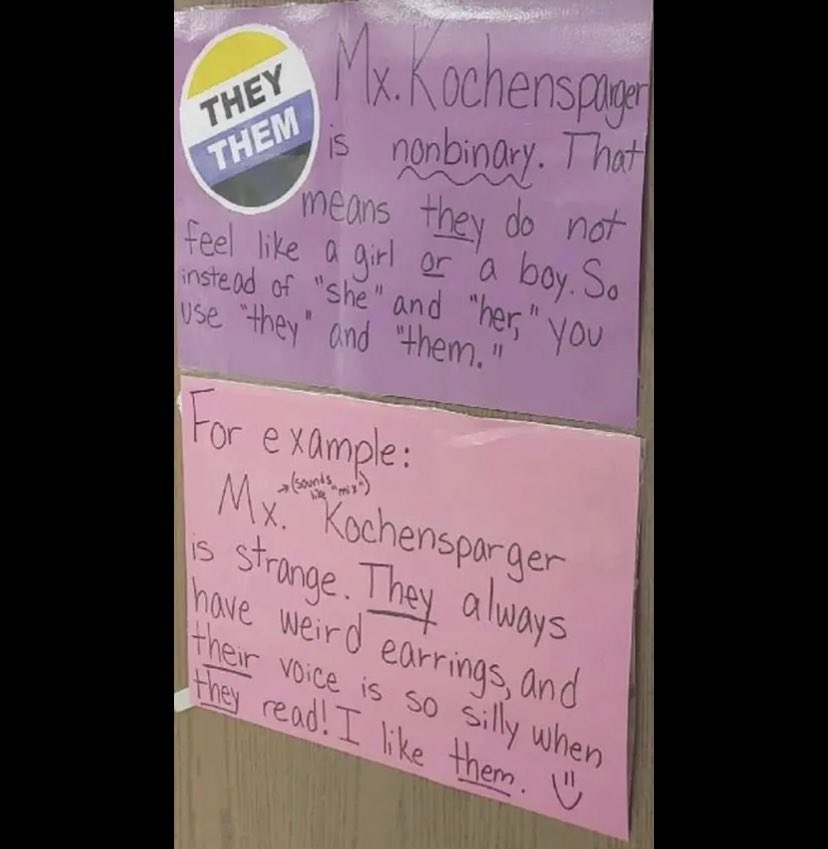 THEY
THEM
Mx. Kochensparger
is nonbinary. That
means they do not
feel like a girl or a boy. So
instead of "she" and "her," you
use "they" and "them."
For example:
(sounds
like "mix")
Mx. Kochensparger
is strange. They always
have weird earrings, and
their voice is so silly when
they read! I like them.